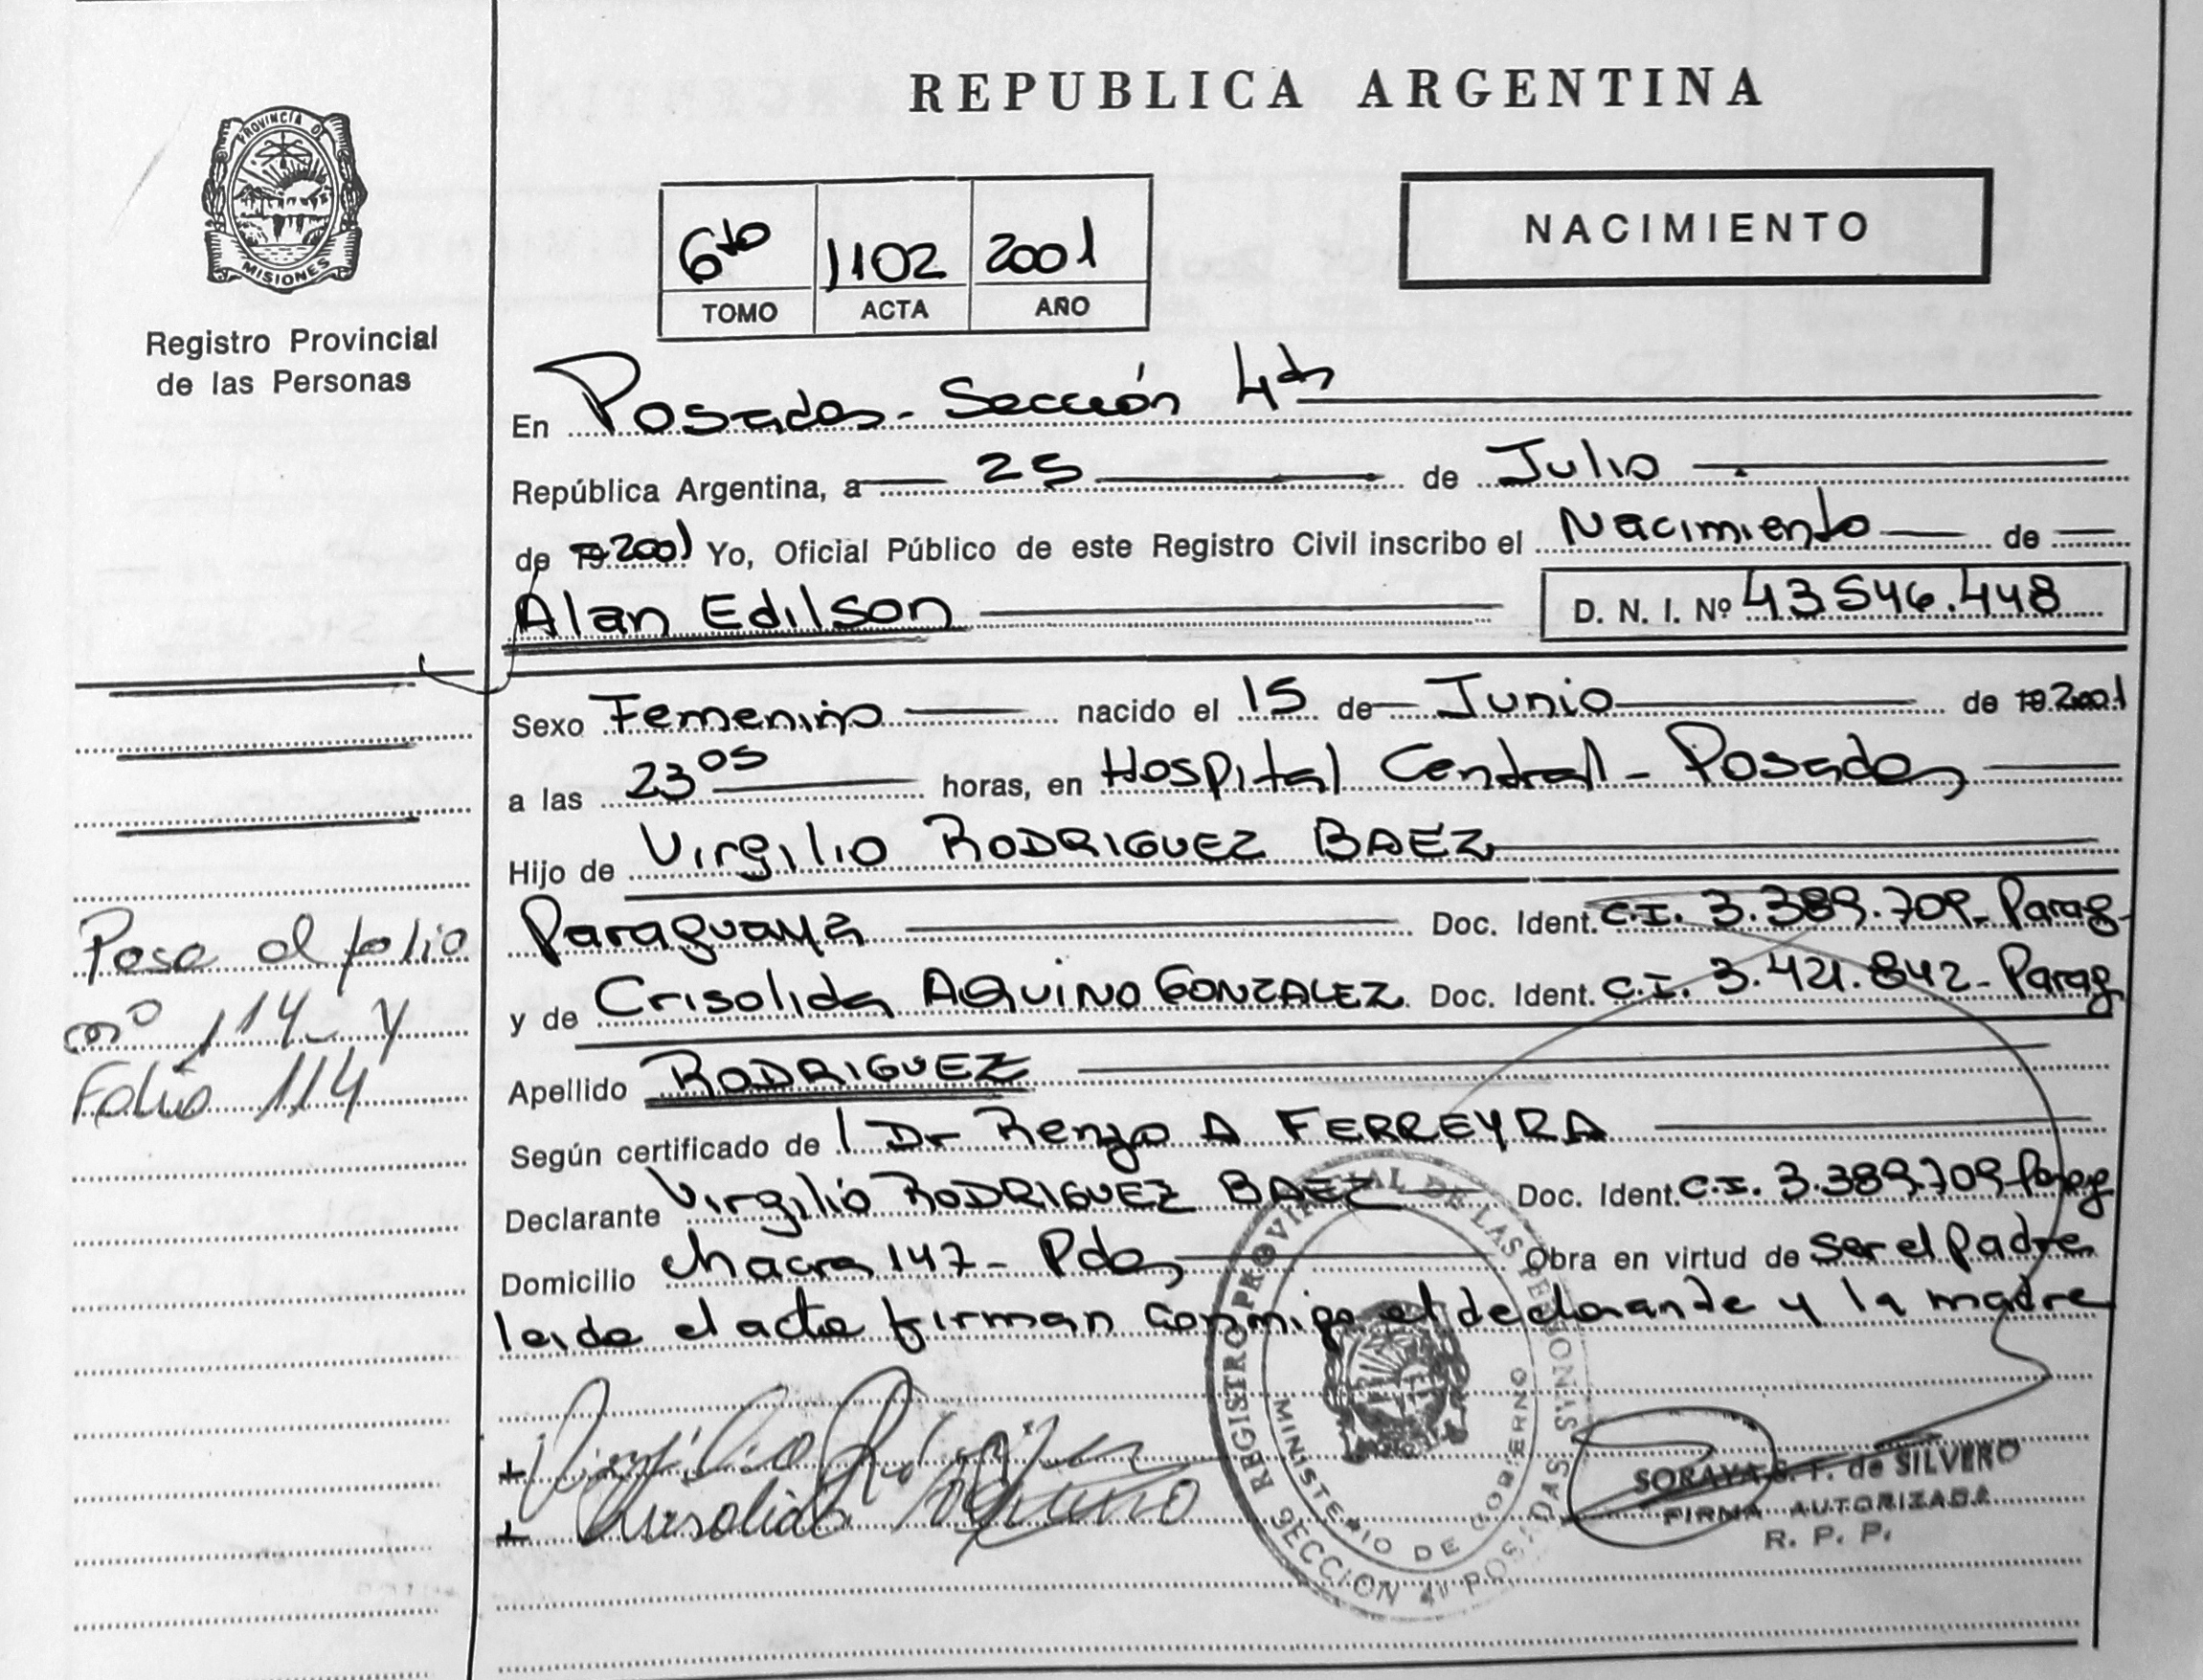 REPUBLICA ARGENTINA
PROVINCIA D
MISIONES
Registro Provincial
de las Personas
6to 1102 2001
TOMO ACTA AÑO
NACIMIENTO
En Posadas - Sección 4ta
República Argentina, a 25 de Julio
de 19 2001 Yo, Oficial Público de este Registro Civil inscribo el Nacimiento de
Alan Edilson D. N. I. Nº 43546.448
Sexo Femenino nacido el 15 de Junio de 19 2001
a las 23 05 horas, en Hospital Central - Posadas
Hijo de Virgilio RODRIGUEZ BAEZ
Paraguaya Doc. Ident. C.I. 3.389.709 - Parag
y de Crisolida AQUINO GONZALEZ Doc. Ident. C.I. 3.421.842 - Parag
Apellido RODRIGUEZ
Según certificado de l Dr Renzo A FERREYRA
Declarante Virgilio RODRIGUEZ BAEZ Doc. Ident. C.I. 3.389.709 Parag
Domicilio chacra 147 - Pdas Obra en virtud de ser el Padre
leida el acta firman conmigo el declarante y la madre
Pasa al folio
nº 114 - y
Folio 114
+ Virgilio Rodriguez
+ Crisolida Aquino
REGISTRO PROVINCIAL DE LAS PERSONAS
MINISTERIO DE GOBIERNO
SECCION 4ª POSADAS
SORAYA S. F. de SILVERO
FIRMA AUTORIZADA
R. P. P.